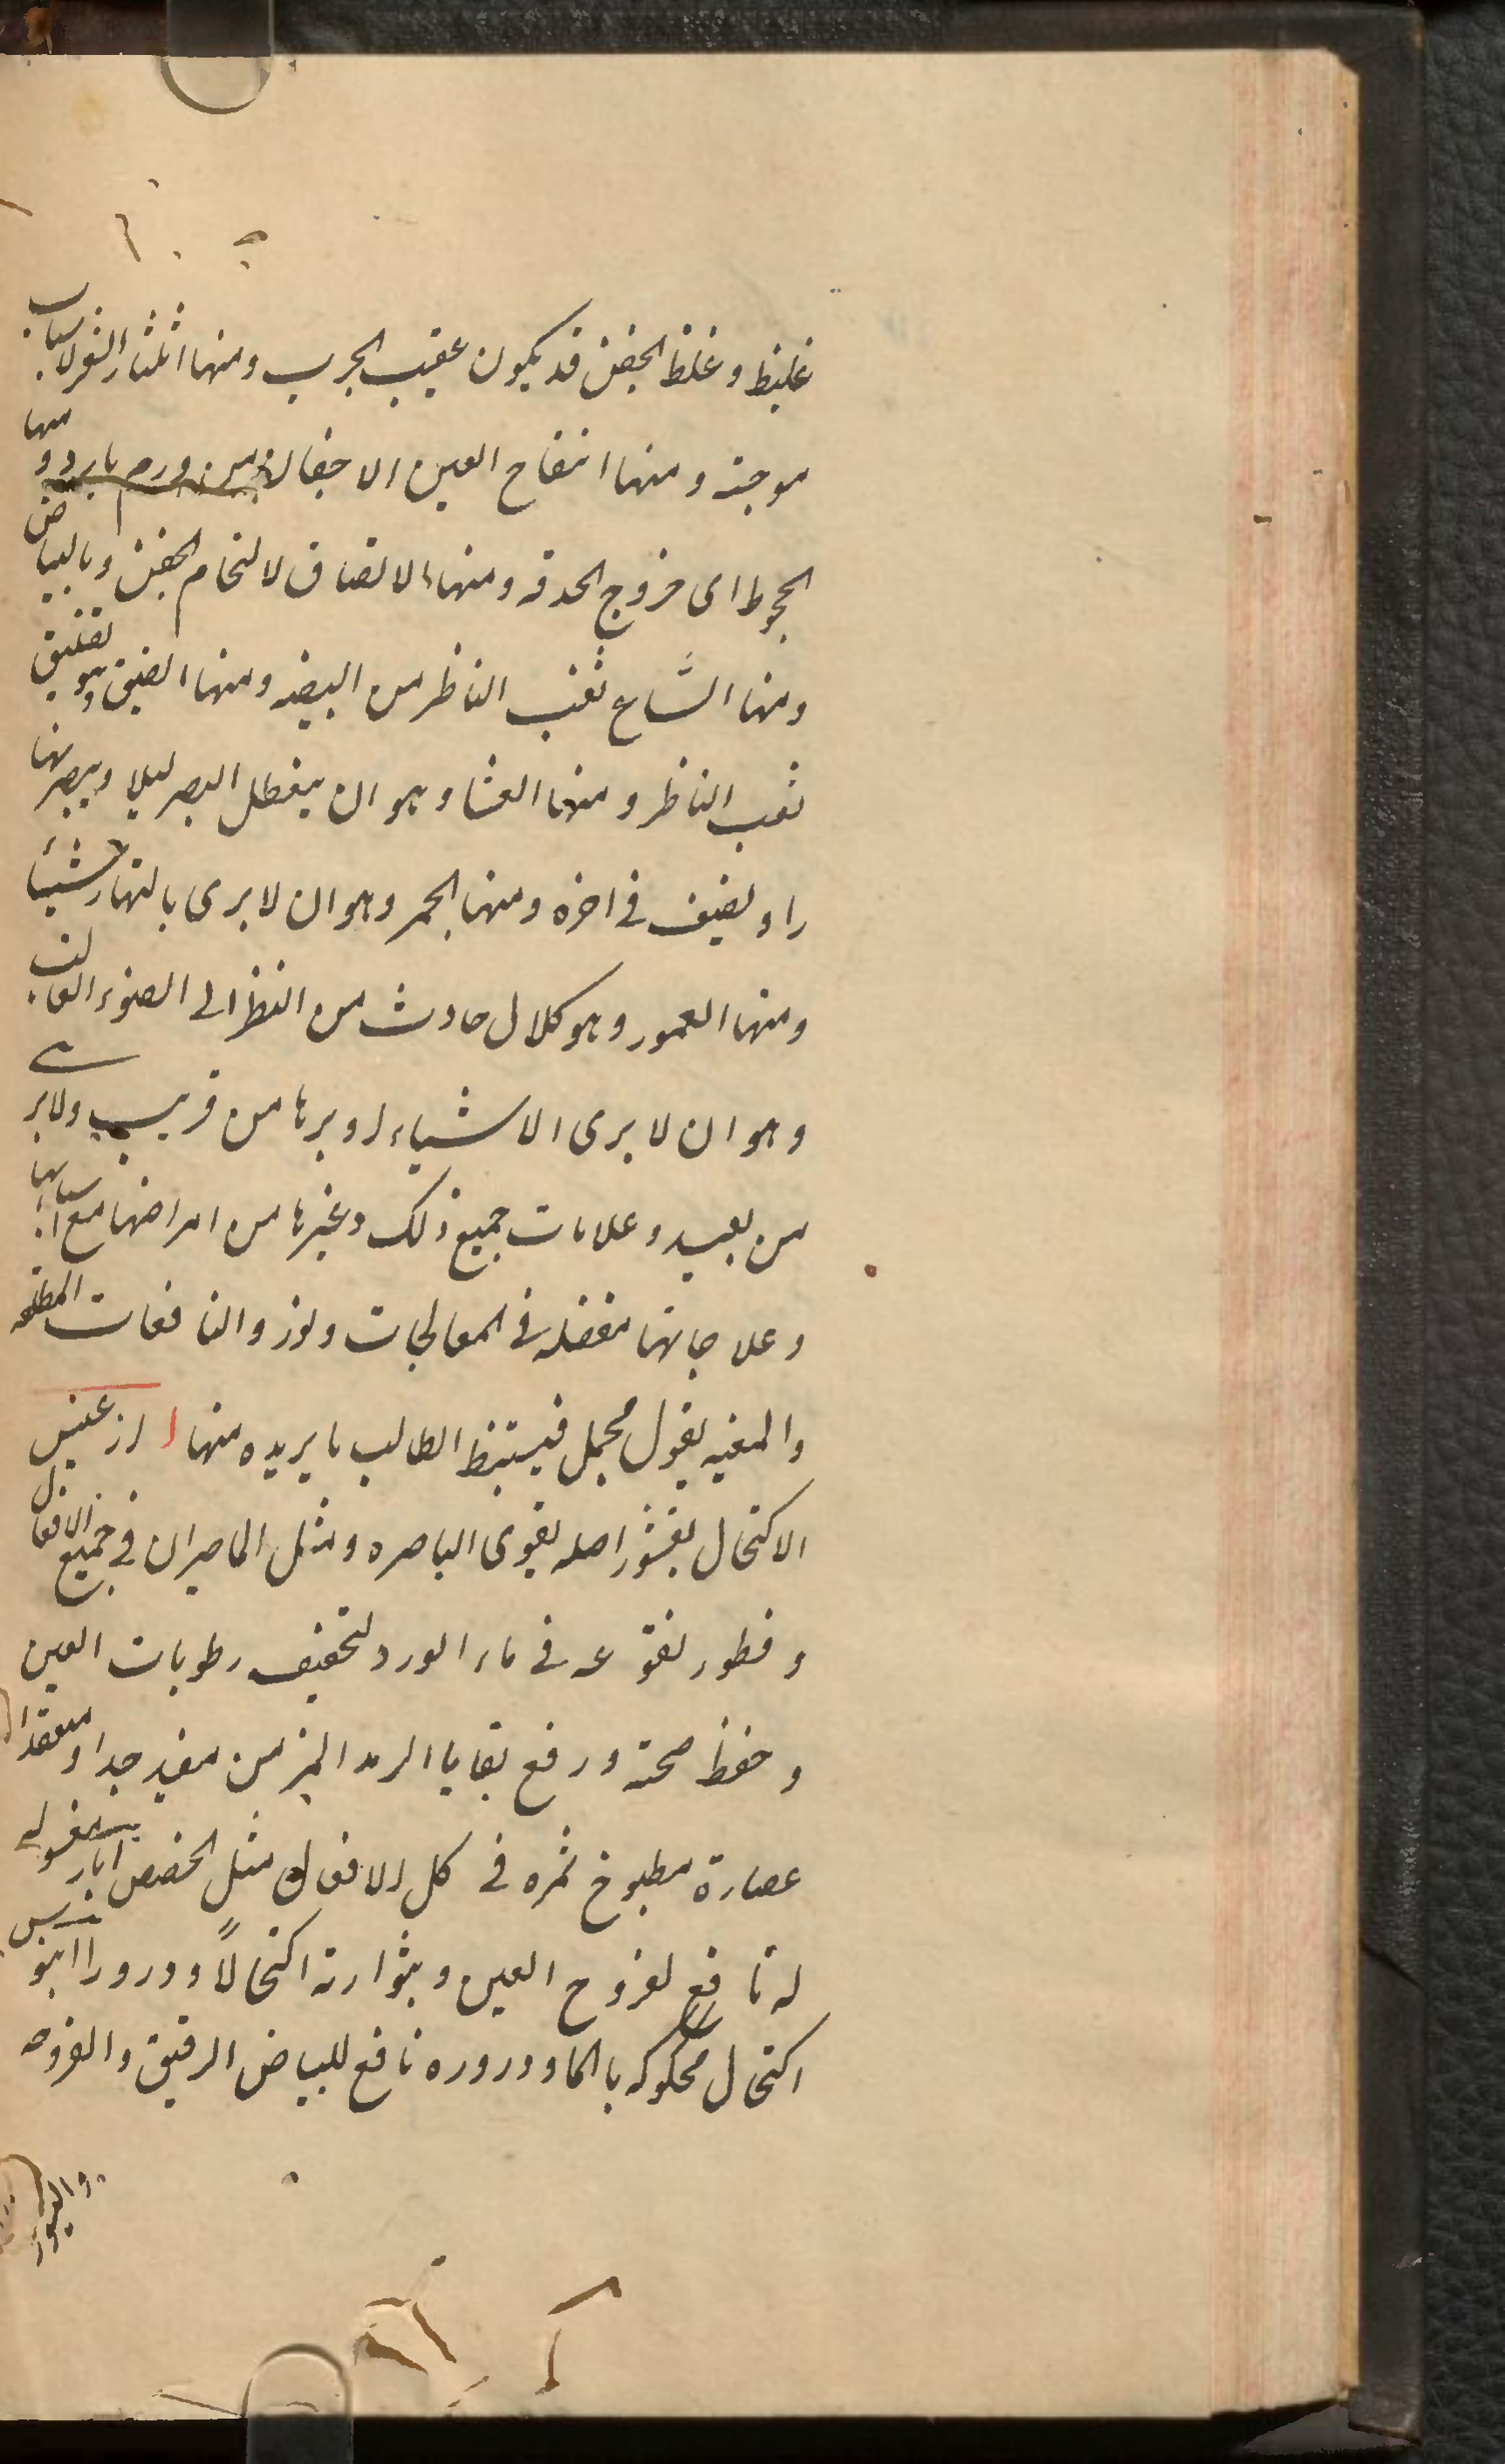 غليظ و غلظ الجفن قد يكون عقيب الجرب و منها انتثار الشعر لاسباب
موجبة و منها انتفاخ العين الاجفان من ورم بارد و منها
الجحوظ اى خروج الحدقه و منها الالتصاق لالتحام الجفن و بالبياض
و منها اتساع ثقب الناظر من البيضه و منها الضيق و هو تضييق
ثقب الناظر و منها العشا و هو ان يتعطل البصر ليلا و يبصر نها
را و يضعف فى اخره و منها الجهر و هو ان لا يرى بالنهار شيئا
و منها القمور و هو كلال حادث من النظر الى الضوء الغالب
و هو ان لا يرى الاشياء او يرها من قريب و لا يرى
من بعيد و علامات جميع ذلك و غيرها من امراضها مع اسبابها
و علاجاتها مفصله فى المعالجات و نوز و النافعات المطلقه
و المقيه بقول مجمل فيستنبط الطالب ما يريده منها ارغيس
الاكتحال بقشر اصله يقوى الباصره و مثل الماميران فى جميع الافعال
و قطور نقوعه فى ماء الورد لتجفيف رطوبات العين
و حفظ صحته و رفع بقايا الرمد المزمن مفيد جدا و منعقد
عصارة مطبوخ ثمره فى كل الافعال مثل الحضض ابار مغسوله
له نافع لقروح العين و بثوارته اكتحالاً و ذرورا ابنوس
اكتحال محكوكه بالماء و ذروره نافع للبياض الرقيق و القروحه